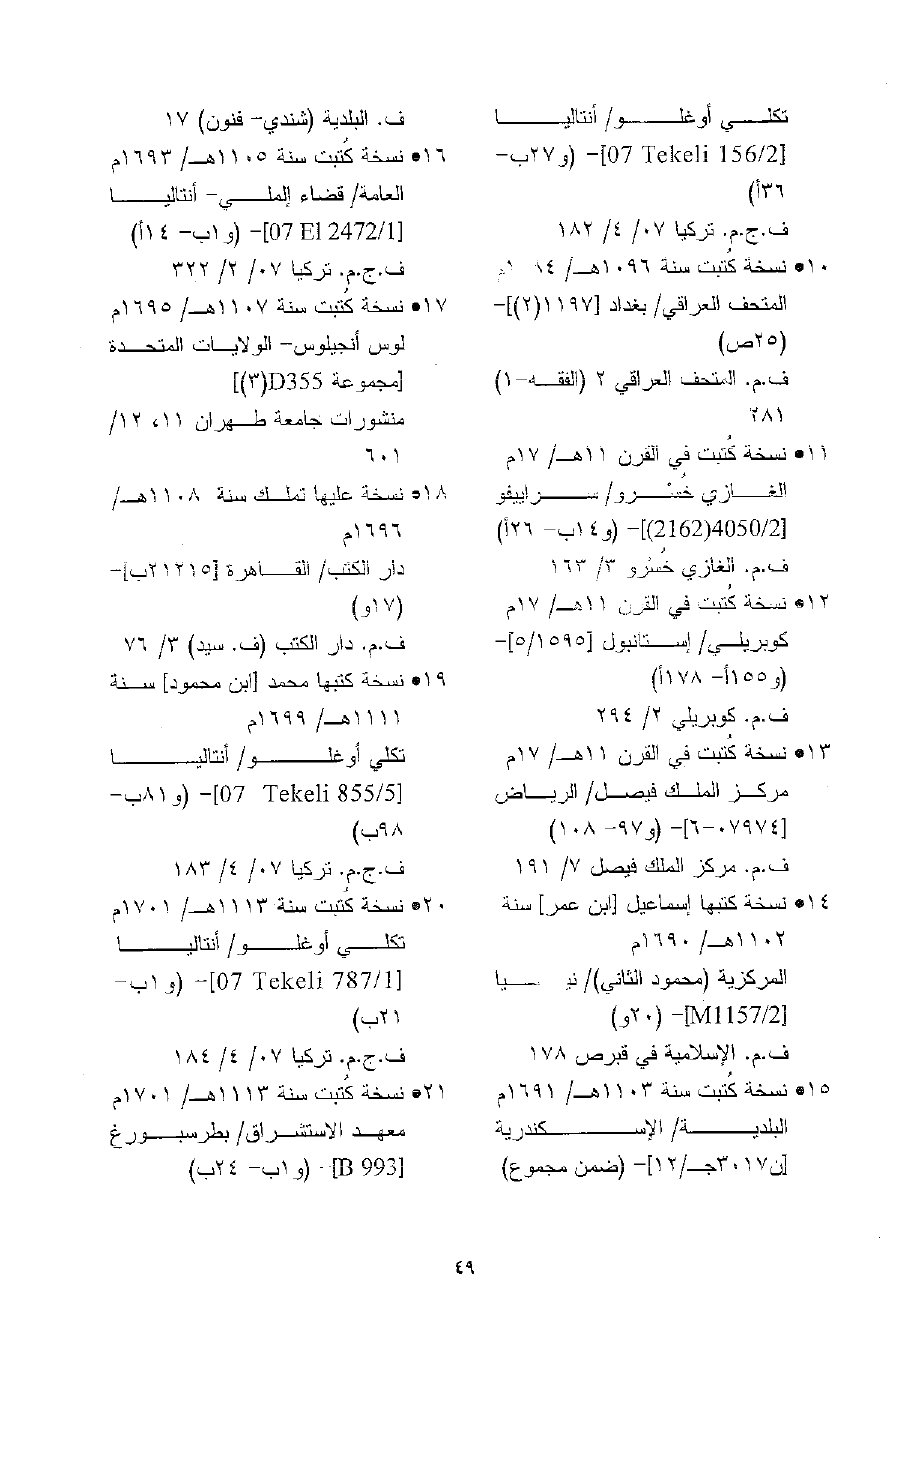 تكلي أوغلو/ أنتاليا
[07 Tekeli 156/2]- (و٢٧ب-
٣٦أ)
ف.ج.م. تركيا ٠٧/ ٤/ ١٨٢
١٠• نسخة كُتبت سنة ١٠٩٦هـ/
المتحف العراقي/ بغداد [١١٩٧(٢)]-
(٢٥ص)
ف.م. المتحف العراقي ٢ (الفقه-١)
٢٨١
١١• نسخة كُتبت في القرن ١١هـ/ ١٧م
الغازي خسْرو/ سراييفو
[4050/2(2162)]- (و١٤ب- ٢٦أ)
ف.م. الغازي خُسْرو ٣/ ١٦٣
١٢• نسخة كُتبت في القرن ١١هـ/ ١٧م
كوبريلي/ إستانبول [٥/١٥٩٥]-
(و١٥٥أ- ١٧٨أ)
ف.م. كوبريلي ٢/ ٢٩٤
١٣• نسخة كُتبت في القرن ١١هـ/ ١٧م
مركز الملك فيصل/ الرياض
[٠٧٩٧٤-٦]- (و٩٧- ١٠٨)
ف.م. مركز الملك فيصل ٧/ ١٩١
١٤• نسخة كتبها إسماعيل [ابن عمر] سنة
١١٠٢هـ/ ١٦٩٠م
المركزية (محمود الثاني)/
[M1157/2]- (٢٠و)
ف.م. الإسلامية في قبرص ١٧٨
١٥• نسخة كُتبت سنة ١١٠٣هـ/ ١٦٩١م
البلدية/ الإسكندرية
[ن٣٠١٧جـ/١٢]- (ضمن مجموع)
ف. البلدية (شندي- فنون) ١٧
١٦• نسخة كُتبت سنة ١١٠٥هـ/ ١٦٩٣م
العامة/ قضاء إلملي- أنتاليا
[07 El 2472/1]- (و١ب- ١٤أ)
ف.ج.م. تركيا ٠٧/ ٢/ ٣٢٢
١٧• نسخة كُتبت سنة ١١٠٧هـ/ ١٦٩٥م
لوس أنجيلوس- الولايات المتحدة
[مجموعة D355(٣)]
منشورات جامعة طهران ١١، ١٢/
٦٠١
١٨• نسخة عليها تملك سنة ١١٠٨هـ/
١٦٩٦م
دار الكتب/ القاهرة [٢١٢١٥ب]-
(١٧و)
ف.م. دار الكتب (ف. سيد) ٣/ ٧٦
١٩• نسخة كتبها محمد [ابن محمود] سنة
١١١١هـ/ ١٦٩٩م
تكلي أوغلو/ أنتاليا
[07 Tekeli 855/5]- (و٨١ب-
٩٨ب)
ف.ج.م. تركيا ٠٧/ ٤/ ١٨٣
٢٠• نسخة كُتبت سنة ١١١٣هـ/ ١٧٠١م
تكلي أوغلو/ أنتاليا
[07 Tekeli 787/1]- (و١ب-
٢١ب)
ف.ج.م. تركيا ٠٧/ ٤/ ١٨٤
٢١• نسخة كُتبت سنة ١١١٣هـ/ ١٧٠١م
معهد الاستشراق/ بطرسبورغ
[B 993]- (و١ب- ٢٤ب)
٤٩